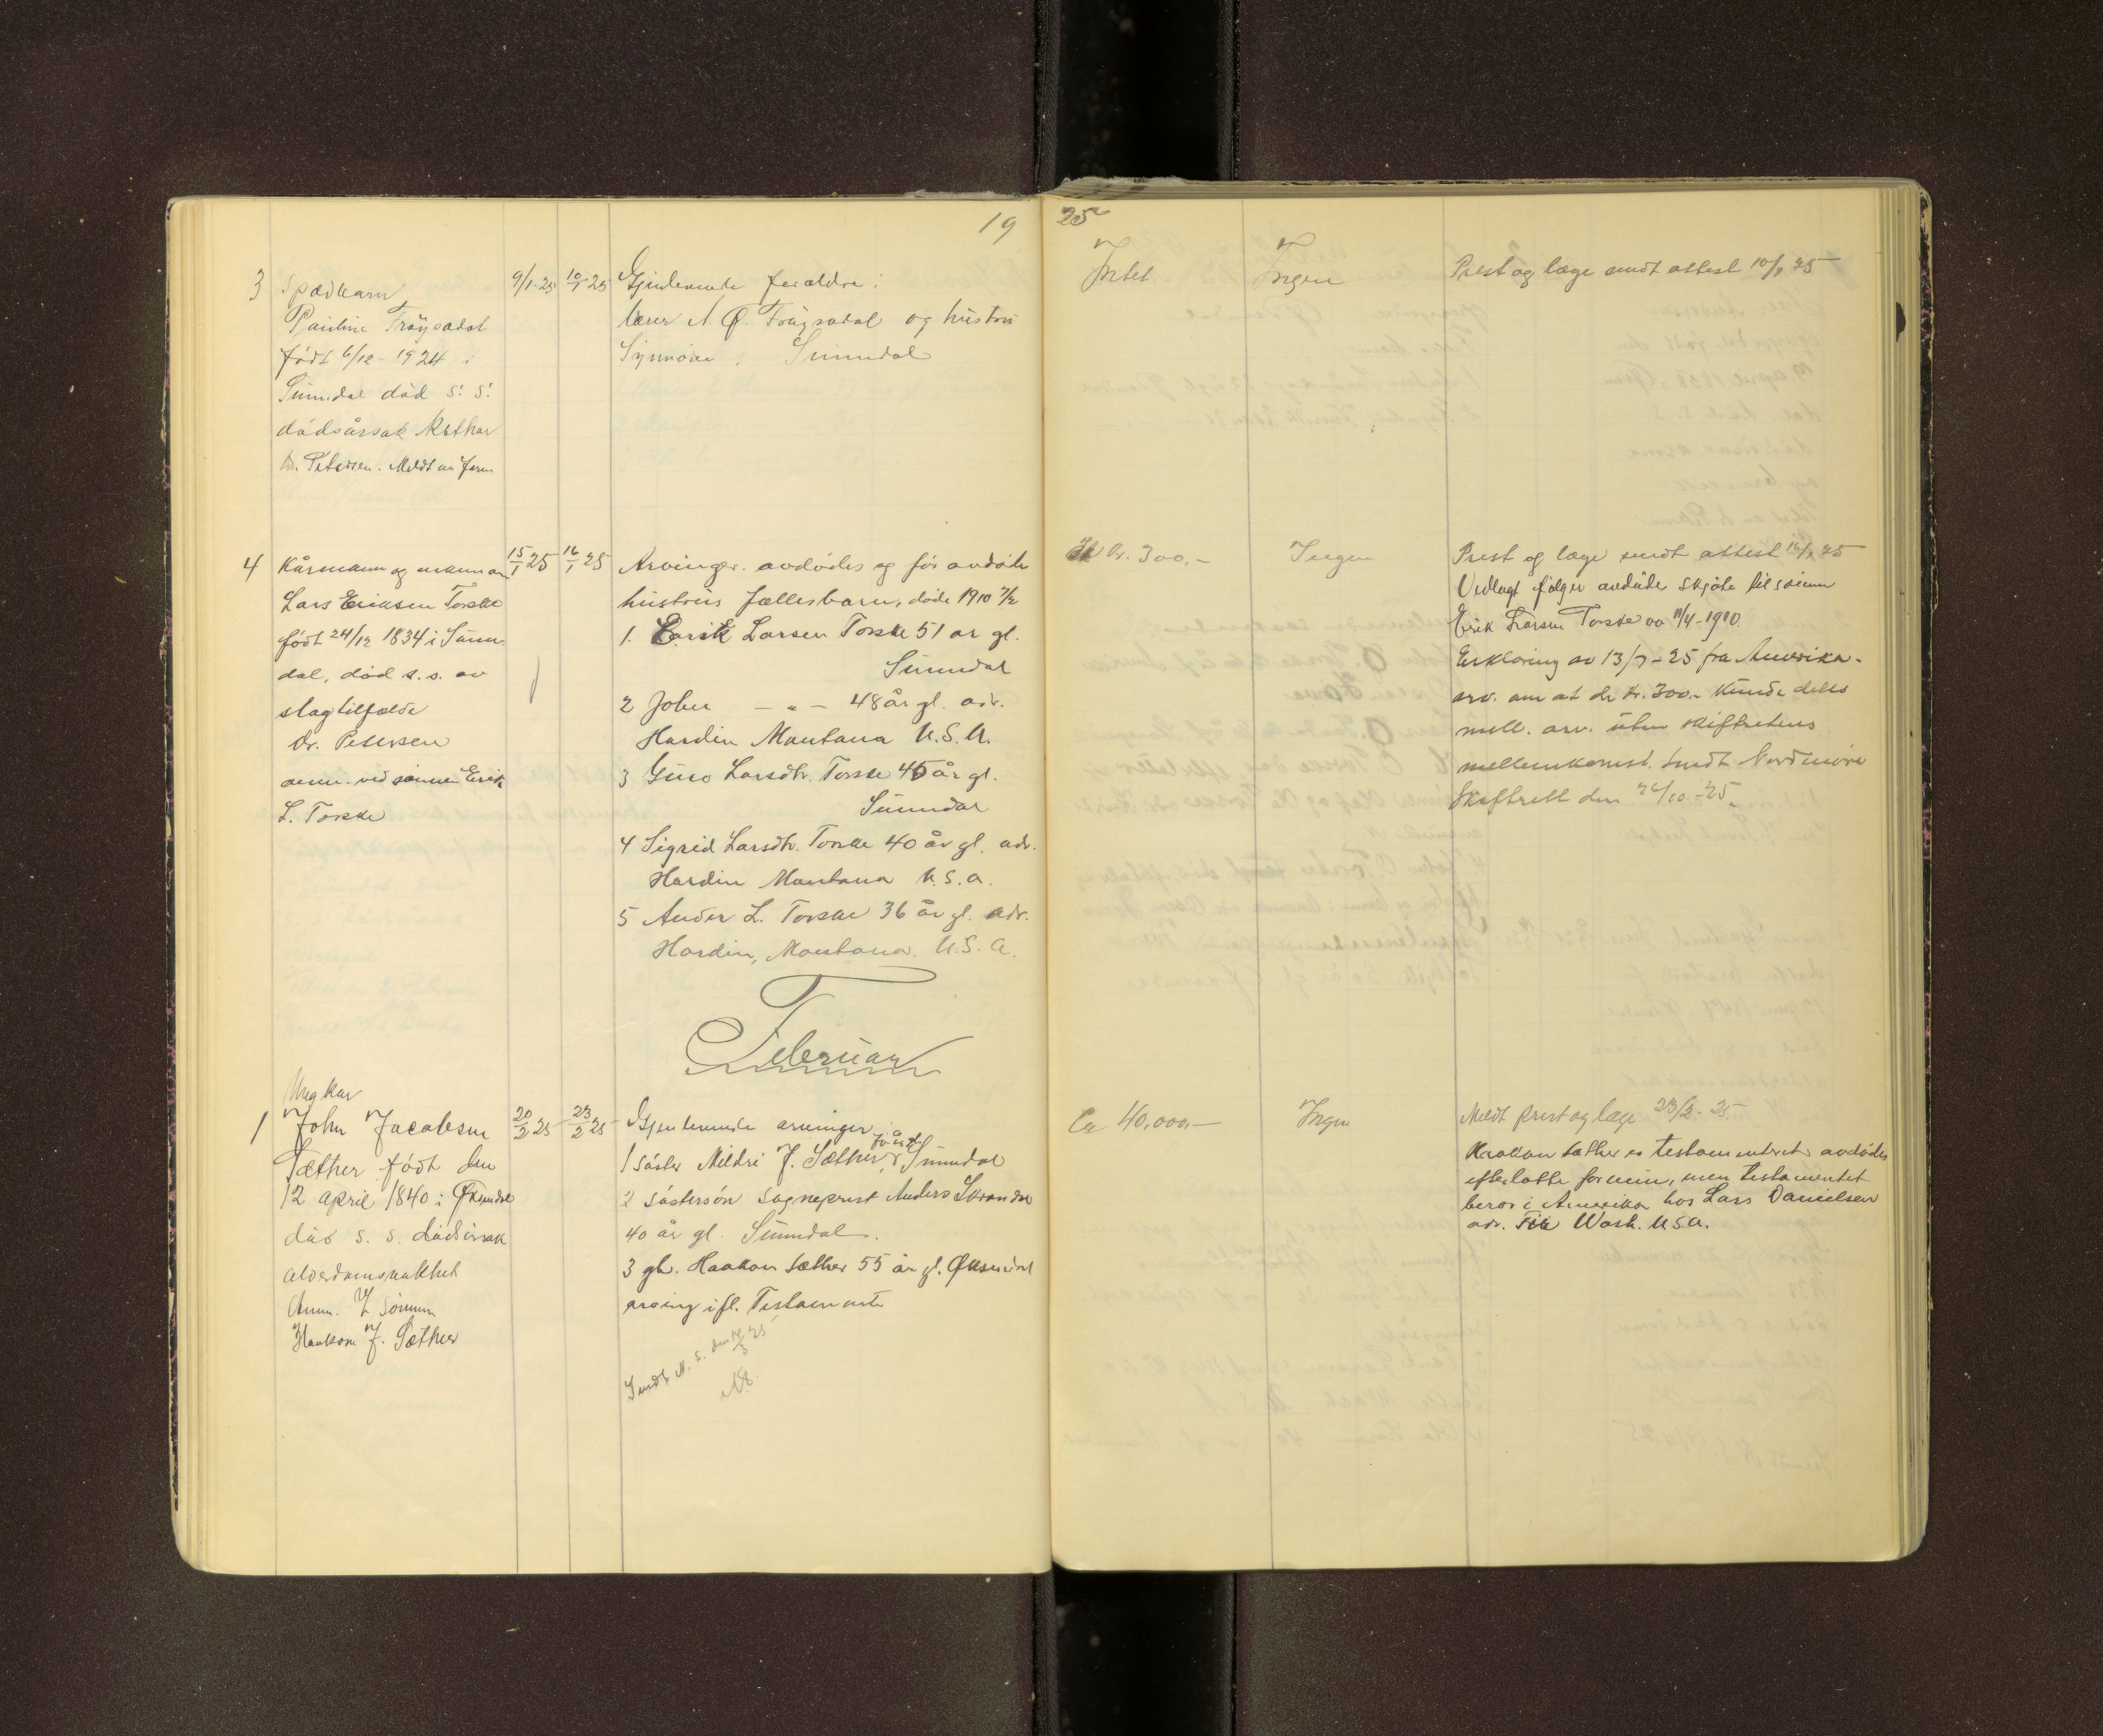 19 25
3 Spædbarn 9/1-25 10/1-25 Gjenlevende forældre: Intet Ingen Prest og læge sendt attest 10/1 25
Pauline Frøysadal lærer A. Ø. Frøysadal og hustru
født 6/12 1924 i Synnøve, Sunndal
Sunndal død s. s.
dødsårsak
Dr. Petersen. Meldt av faren
4 Kårmann og enkemann 15/1 25 16/1 25 Arvinger. avdødes og før avdøde Kr. 300,- Ingen Prest og læge sendt attest 16/1 25
Lars Eriksen Torske hustrus fællesbarn, døde 1910 7/2 Vedlagt følger avdøde skjøte til sønnen
født 24/12 1834 i Sunn- 1. Erik Larsen Torske 51 år gl. Erik Larsen Torske av 11/4-1910.
dal, død s. s. av Sunndal Erklæring av 13/7-25 fra Amerika-
slagtilfælde 2 John — " — 48 år gl. adr. arv. om at de kr. 300.- kunde deles
Dr. Petersen Hardin Montana U.S.A. mell. arv. uten skifteretens
anm. ved sønnen Erik 3 Guro Larsdtr. Torske 45 år gl. mellemkomst. Sendt Nordmøre
L. Torske Sunndal Skifterett den /10-25.
4 Sigrid Larsdtr. Torske 40 år gl. adr.
Hardin Montana U.S.A.
5 Ander L. Torske 36 år gl. adr.
Hardin, Montana. U.S.A.
Februar
Ungkar
1 John Jacobsen 20/2 25 23/2 25 Gjenlevende arvinger Ca 40,000,- Ingen Meldt prest og læge 23/2-25
Sæther født den 1 søster Mildri J. Sæther, Sunndal Haakon Sæther er testamenteret avdødes
12 april 1840 i Øksendal 2 søstersøn sogneprest Anders Skrondal efterlatte formue, men testamentet
død s. s. dødsårsak 40 år gl. Sunndal. beror i Amerika hos Lars Danielsen
alderdomsvakhet 3 gb. Haakon Sæther 55 år gl. Øksendal adr. Wash. USA.
Anm. sønnen arving ifl. Testamente
Haakon J. Sæther
Sendt N. S. den 25